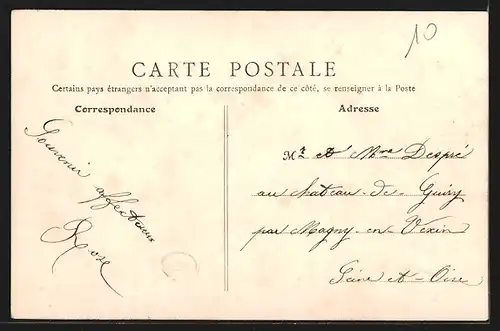 10
CARTE POSTALE
Certains pays étrangers n'acceptant pas la correspondance de ce côté, se renseigner à la Poste
Correspondance
Souvenir
affectueux
Rose
Adresse
Mr et Mme Despré
au château de Guiry
par Magny-en-Vexin
Seine-et-Oise